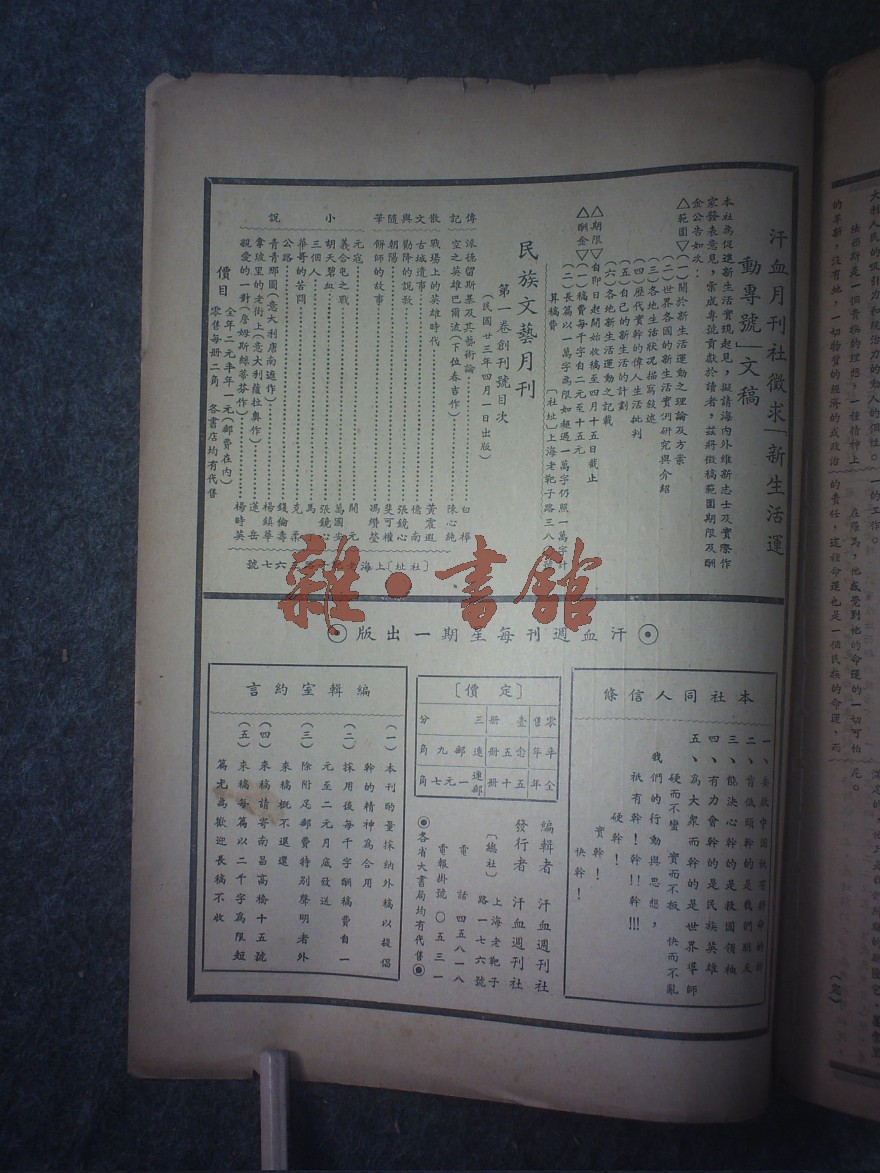 汗血月刊社徵求「新生活運
動專號」文稿
本社為促進新生活實現起見,擬請海內外維新志士及實際作
家發表意見,彙成專號貢獻於讀者,茲將徵稿範圍期限及酬
金公告如次:
△範圍▽(一)關於新生活運動之理論及方案
(二)世界各國的新生活實測研究與介紹
(三)各地生活狀况描寫敍述
(四)歷代實幹的偉人生活批判
(五)自己的新生活的計劃
(六)各地新生活運動之記載
△期限▽自即日起開始收稿至四月十五日截止
△酬金▽(一)稿費每千字自二元至十五元
(二)長篇以一萬字為限如超過一萬字仍照一萬字計
算稿費
〔社址〕上海老靶子路三八
民族文藝月刊
第一卷創刊號目次
(民國廿三年四月一日出版)
傳記
派德留斯基及其藝術論 白樺
空之英雄巴爾波(下位春吉作) 陳心純
散文與隨筆
戰場上的英雄時代 黃震遐
古城遺事 儂南
勸降的説歌 張鏡心
朝陽 斐可權
餅師的故事 馮纘瑩
小說
元寇 開元
義合屯之戰 萬國安
胡天碧血 張鏡心
三個人 馬
華哥的苦悶 克柔
公路 錢倫壽
青青那圖(意大利唐南遮作) 楊鎮華
韋坡里的老街上(意大利薩拉奧作) 蓬岳
親愛的一對(詹姆斯綠蒂芬作) 楊時英
價目
全年二元半年一元(郵費在內)
零售每冊二角 各書店均有代售
〔社址〕上海老 六七號
雜·書館
◉汗血週刊每星期一出版◉
本社同人信條
二、肯低頭幹的是我們朋友
三、能決心幹的是救國領袖
四、有力會幹的是民族英雄
五、為大衆而幹的是世界導師
硬而不蠻 實而不板 快而不亂
我們的行動與思想,
祇有幹!幹!!幹!!!
硬幹!
實幹!
快幹!
〔定價〕
零售 壹冊 三分
半年 念五冊 連郵 九角
全年 五十冊 連郵 一元七角
編輯者 汗血週刊社
發行者 汗血週刊社
〔總社〕上海老靶子
路一七六號
電話 四五八一八
電報掛號 〇五三一
◉各省大書局均有代售◉
編輯室約言
(一)本刊酌量採納外稿以提倡
幹的精神為合用
(二)採用後每千字酬稿費自一
元至二元月底致送
(三)除附足郵費特別聲明者外
來稿概不退還
(四)來稿請寄南昌高橋十五號
(五)來稿每篇以二千字為限短
篇尤為歡迎長稿不收